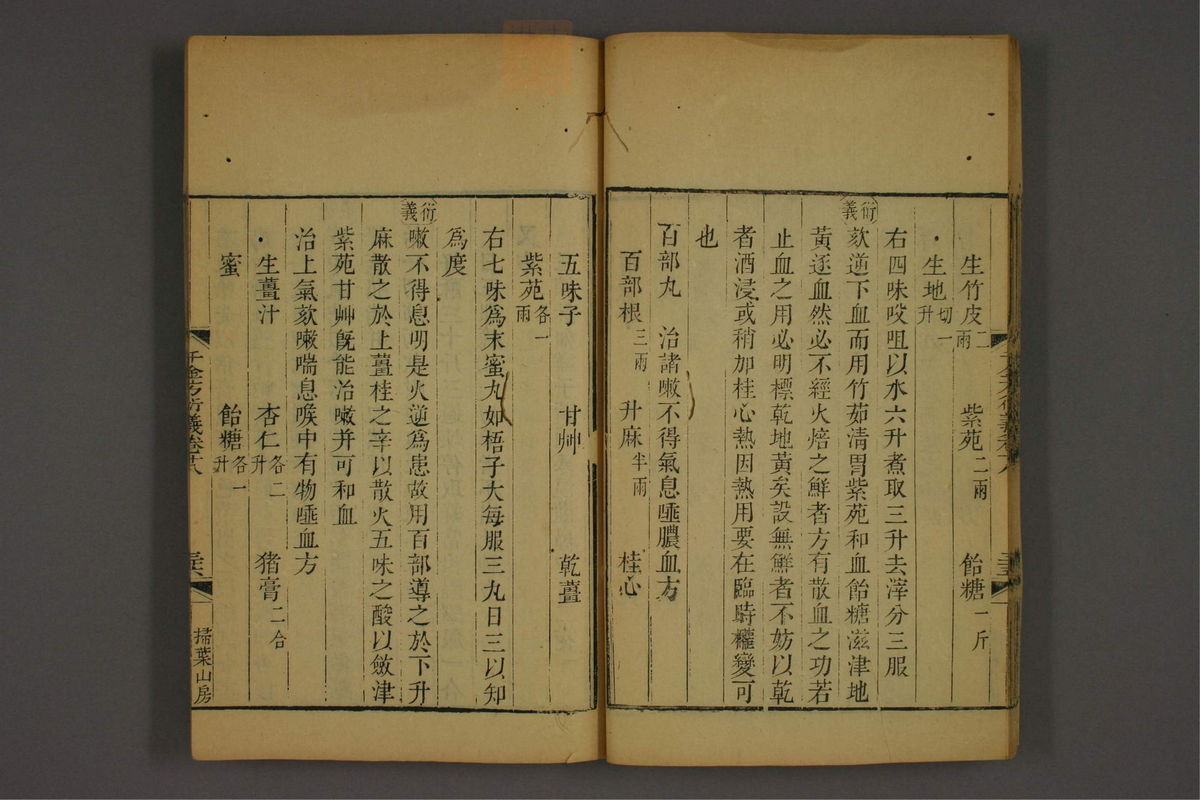 生竹皮二兩　紫苑二兩　飴糖一斤
生地切一升
右四味㕮咀以水六升煮取三升去滓分三服
衍義
欬逆下血而用竹茹清胃紫苑和血飴糖滋津地
黃逐血然必不經火焙之鮮者方有散血之功若
止血之用必明標乾地黃矣設無鮮者不妨以乾
者酒浸或稍加桂心熱因熱用要在臨時權變可
也
百部丸　治諸嗽不得氣息唾膿血方
百部根三兩　升麻半兩　桂心
五味子　甘艸　乾薑
紫苑各一兩
右七味爲末蜜丸如梧子大每服三丸日三以知
爲度
衍義
嗽不得息明是火逆爲患故用百部導之於下升
麻散之於上薑桂之辛以散火五味之酸以斂津
紫苑甘艸旣能治嗽并可和血
治上氣欬嗽喘息喉中有物唾血方
生薑汁　杏仁各二升　猪膏二合
蜜　飴糖各一升
千金方衍義卷十八
掃葉山房